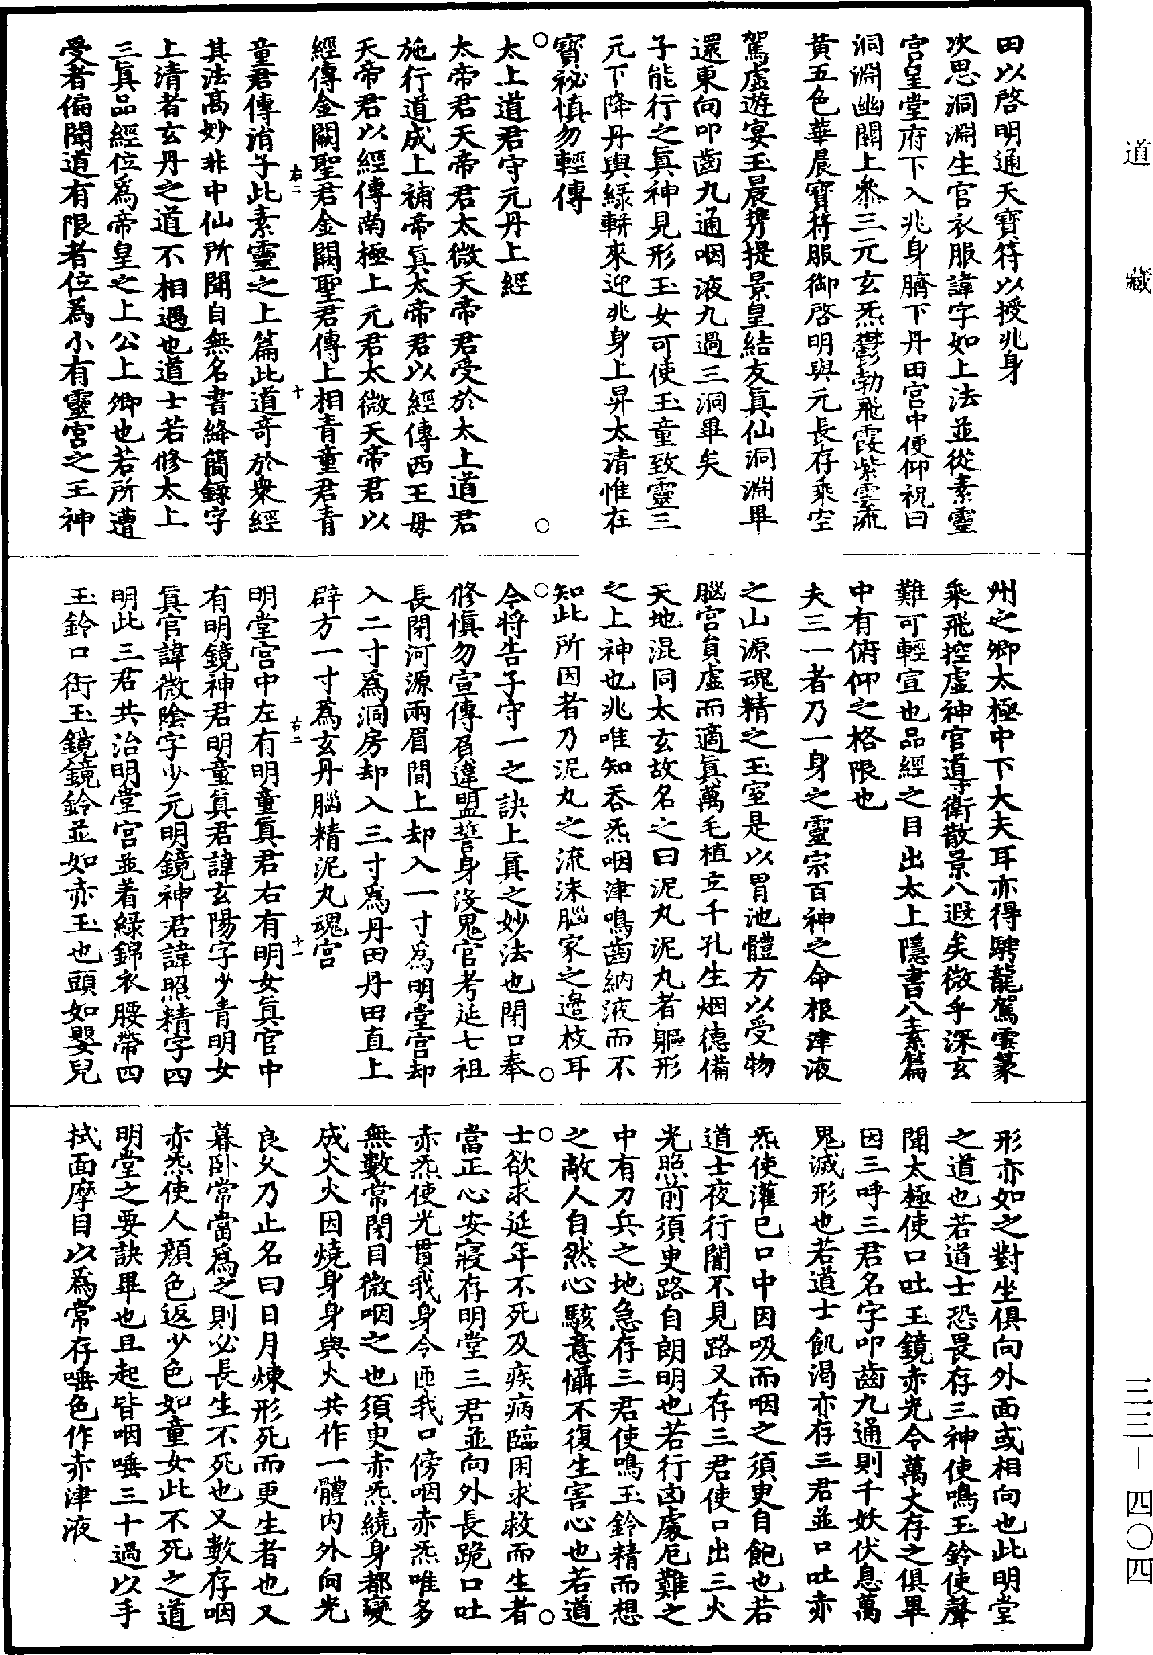 道藏
三三—四〇四
田以啓明通天寶符以授兆身
次思洞淵生官衣服諱字如上法並從素靈
宮皇堂府下入兆身臍下丹田宮中便仰祝曰
洞淵幽關上參三元玄炁鬱勃飛霞紫雲流
黃五色華晨寶符服御啓明與元長存乘空
駕虛遊宴玉晨携提景皇結友眞仙洞淵畢
還東向叩齒九通咽液九過三洞畢矣
子能行之眞神見形玉女可使玉童致靈三
元下降丹輿綠軿來迎兆身上昇太清惟在
寶祕慎勿輕傳
太上道君守元丹上經
太帝君天帝君太微天帝君受於太上道君
施行道成上補帝眞太帝君以經傳西王母
天帝君以經傳南極上元君太微天帝君以
經傳金闕聖君金闕聖君傳上相青童君青
右二 十
童君傳涓子此素靈之上篇此道奇於衆經
其法髙妙非中仙所聞自無名書絳簡錄字
上清者玄丹之道不相遇也道士若修太上
三眞品經位爲帝皇之上公上卿也若所遭
受者偏闻道有限者位爲小有靈宮之王神
州之卿太極中下大夫耳亦得騁龍駕雲蓋
乘飛控虛神官導衛散景八遐矣微乎深玄
難可輕宣也品經之目出太上隱書八素篇
中有俯仰之格限也
夫三一者乃一身之靈宗百神之命根津液
之山源魂精之玉室是以胃池體方以受物
腦宮員虛而適眞萬毛植立千孔生烟德備
天地混同太玄故名之曰泥丸泥丸者軀形
之上神也兆唯知吞炁咽津鳴齒納液而不
知此所因者乃泥丸之流沫腦家之邊枝耳
今將告子守一之訣上眞之妙法也閉口奉
修慎勿宣傳負違盟誓身沒鬼官考延七祖
長閉河源兩眉間上却入一寸爲明堂宮却
入二寸爲洞房却入三寸爲丹田丹田直上
辟方一寸爲玄丹腦精泥丸魂宮
右二 十一
明堂宮中左有明童眞君右有明女眞官中
有明鏡神君明童眞君諱玄陽字少青明女
眞官諱微陰字少元明鏡神君諱照精字四
明此三君共治明堂宮並着綠錦衣腰帶四
玉鈴口銜玉鏡鏡鈴並如赤玉也頭如嬰兒
形亦如之對坐俱向外面或相向也此明堂
之道也若道士恐畏存三神使鳴玉鈴使聲
聞太極使口吐玉鏡赤光令萬丈存之俱畢
因三呼三君名字叩齒九通則千妖伏息萬
鬼滅形也若道士飢渴亦存三君並口吐赤
炁使灌已口中因吸而咽之須臾自飽也若
道士夜行闇不見路又存三君使口出三火
光照前須臾路自朗明也若行凶處厄難之
中有刀兵之地急存三君使鳴玉鈴精而想
之敵人自然心駭意懾不復生害心也若道
士欲求延年不死及疾病臨困求救而生者
當正心安寢存明堂三君並向外長跪口吐
赤炁使光貫我身令匝我口傍咽赤炁唯多
無數常閉目微咽之也須臾赤炁繞身都變
成火火因燒身身與火共作一體內外向光
良久乃止名曰日月煉形死而更生者也又
暮卧常當爲之則必長生不死也又數存咽
赤炁使人顏色返少色如童女此不死之道
明堂之要訣畢也且起皆咽唾三十過以手
拭面摩目以爲常存唾色作赤津液